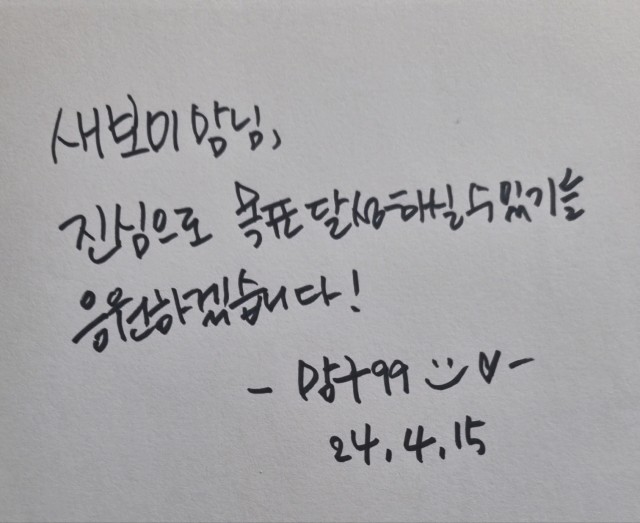 새보미맘님,
진심으로 목표 달성하실 수 있기를
응원하겠습니다!
- 망구99 :) ♡ -
24.4.15